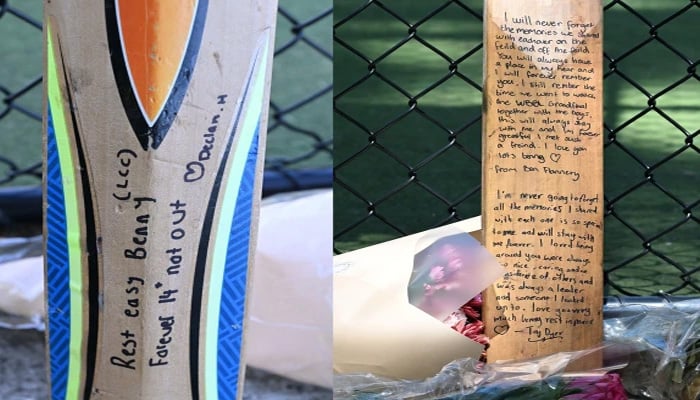 Rest easy Benny (LCC)
Forever 14* not out
♡ Declan.H
I will never forget
the memories we shared
with eachover on the
feild and off the feild
You will always have
a place in my hear and
I will forever rember
you. I still rember the
time we went to watch
the WBBL Grandfinal
together with the boys,
this will always stay
with me and im forever
grateful I met such
a freind. I love you
lots benny ♡
from Ben Flannery
I'm never going to forget
all the memories I shared
with each one is so special
to me and will stay with
me forever. I loved being
around you were always
so nice, caring and
of others and
was always a leader
and someone I looked
up to. love you very
much benny rest in peace
♡ - Tay